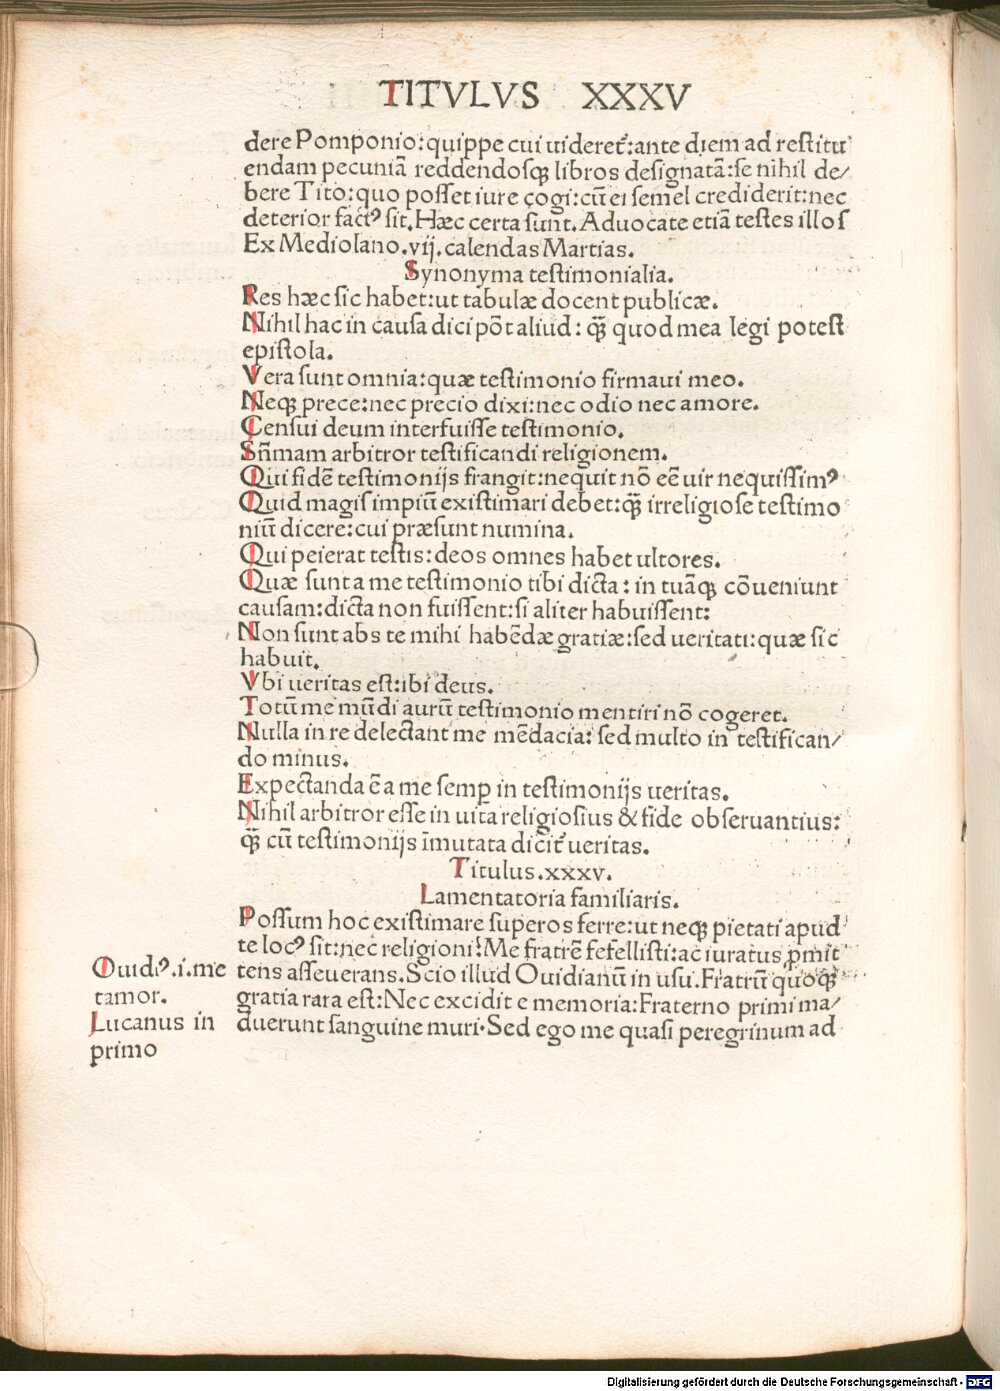 TITVLVS XXXV
dere Pomponio: quippe cui uideret᷑: ante diem ad restitu
endam pecuniā reddendosqꝫ libros designatā: se nihil de/
bere Tito: quo posset iure cogi: cū ei semel crediderit: nec
deterior factꝰ sit. Hæc certa sunt. Aduocate etiā testes illos
Ex Mediolano. vij. calendas Martias.
Synonyma testimonialia.
Res hæc sic habet: ut tabulæ docent publicæ.
Nihil hac in causa dici pōt aliud: qꝫ̄ quod mea legi potest
epistola.
Vera sunt omnia: quæ testimonio firmaui meo.
Neqꝫ prece: nec precio dixi: nec odio nec amore.
Censui deum interfuisse testimonio.
Sūmam arbitror testificandi religionem.
Qui fidē testimonijs frangit: nequit nō eē uir nequissimꝰ
Quid magis impiū existimari debet: qꝫ̄ irreligiose testimo
niū dicere: cui præsunt numina.
Qui peierat testis: deos omnes habet ultores.
Quæ sunt a me testimonio tibi dicta: in tuāqꝫ cōueniunt
causam: dicta non fuissent: si aliter habuissent:
Non sunt abs te mihi habēdæ gratiæ: sed ueritati: quæ sic
habuit.
Vbi ueritas est: ibi deus.
Totū me mūdi aurū testimonio mentiri nō cogeret.
Nulla in re delectant me mēdacia: sed multo in testifican/
do minus.
Expectanda ē a me semꝑ in testimonijs ueritas.
Nihil arbitror esse in uita religiosius & fide obseruantius:
qꝫ̄ cū testimonijs īmutata dicit᷑ ueritas.
Titulus. xxxv.
Lamentatoria familiaris.
Possum hoc existimare superos ferre: ut neqꝫ pietati apud
te locꝰ sit: nec religioni? Me fratrē fefellisti: ac iuratus ꝑmit
tens asseuerans. Scio illud Ouidianū in usu. Fratrū quoqꝫ
gratia rara est: Nec excidit e memoria: Fraterno primi ma/
duerunt sanguine muri. Sed ego me quasi peregrinum ad
Ouidiꝰ. i. me
tamor.
Lucanus in
primo
Digitalisierung gefördert durch die Deutsche Forschungsgemeinschaft - DFG